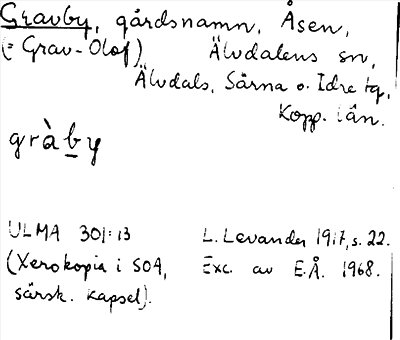 Gravby, gårdsnamn, Åsen,
(= Grav-Olof) Älvdalens sn,
Älvdals, Särna o. Idre tg,
Kopp. län.
gràby
ULMA 301:13 L. Levander 1917, s. 22.
(Xerokopia i SOA, Exc. av E.Å. 1968.
särsk. kapsel).